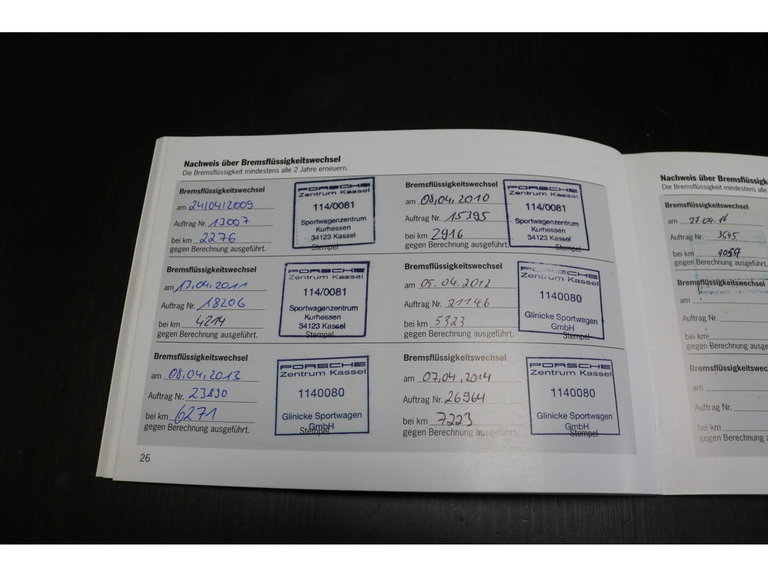 Nachweis über Bremsflüssigkeitswechsel
Die Bremsflüssigkeit mindestens alle 2 Jahre erneuern.
Bremsflüssigkeitswechsel
am 24/04/2009
Auftrag Nr. 13007
bei km 2276
gegen Berechnung ausgeführt.
PORSCHE
Zentrum Kassel
114/0081
Sportwagenzentrum
Kurhessen
34123 Kassel
Stempel
Bremsflüssigkeitswechsel
am 08.04.2010
Auftrag Nr. 15395
bei km 2916
gegen Berechnung ausgeführt.
PORSCHE
Zentrum Kassel
114/0081
Sportwagenzentrum
Kurhessen
34123 Kassel
Stempel
Bremsflüssigkeitswechsel
am 13.04.2011
Auftrag Nr. 18206
bei km 4214
gegen Berechnung ausgeführt.
PORSCHE
Zentrum Kassel
114/0081
Sportwagenzentrum
Kurhessen
34123 Kassel
Stempel
Bremsflüssigkeitswechsel
am 05.04.2012
Auftrag Nr. 21146
bei km 5323
gegen Berechnung ausgeführt.
PORSCHE
Zentrum Kassel
1140080
Glinicke Sportwagen
GmbH
Stempel
Bremsflüssigkeitswechsel
am 08.04.2013
Auftrag Nr. 23830
bei km 6271
gegen Berechnung ausgeführt.
PORSCHE
Zentrum Kassel
1140080
Glinicke Sportwagen
GmbH
Stempel
Bremsflüssigkeitswechsel
am 07.04.2014
Auftrag Nr. 26964
bei km 7223
gegen Berechnung ausgeführt.
PORSCHE
Zentrum Kassel
1140080
Glinicke Sportwagen
GmbH
Stempel
26
Nachweis über Bremsflüssigk
Die Bremsflüssigkeit mindestens alle
Bremsflüssigkeitswechsel
am
Auftrag Nr. 3545
bei km
gegen Berechnung ausgeführt.
Bremsflüssigkeitswechsel
am
Auftrag Nr.
bei km
gegen Berechnung ausgeführt.
Bremsflüssigkeitswechsel
am
Auftrag Nr.
bei km
gegen Berechnung ausgeführt.